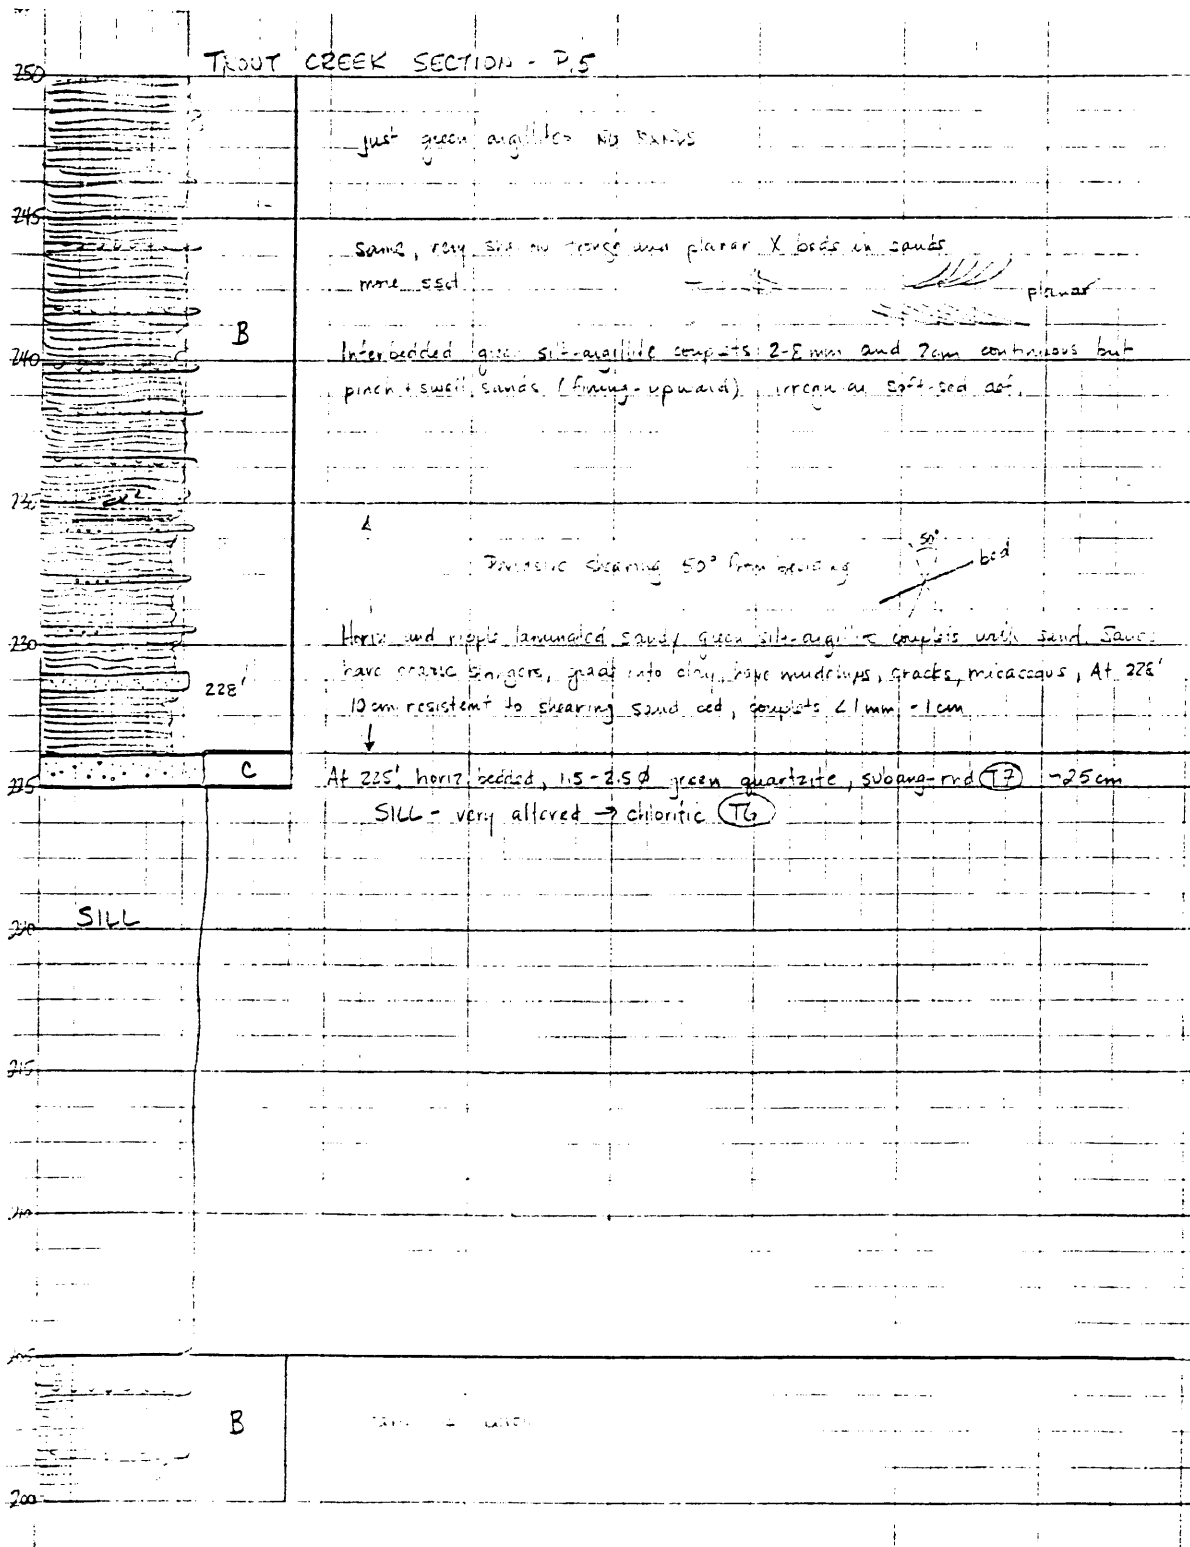 TROUT CREEK SECTION - P.5
250
just green argillites NO SANDS
245
same, very and planar X beds in sands
more ssd
planar
B
Interbedded green silt-argillite couplets 2-8mm and 2cm continuous but
240
pinch + swell sands (fining-upward), irregular soft-sed def.
235
50°
shearing 50° from bedding
bed
Horiz and ripple laminated sandy green silt-argillite couplets with sand. Sands
230
have stringers, grade into clay, have mudchips, cracks, micaceous, At 228'
228'
10cm resistent to shearing sand bed, couplets <1mm - 1cm
C
225
At 225', horiz bedded, 1.5-2.5Ø green quartzite, subang-rnd T7 ~25cm
SILL - very altered → chloritic T6
SILL
220
215
210
205
B
200